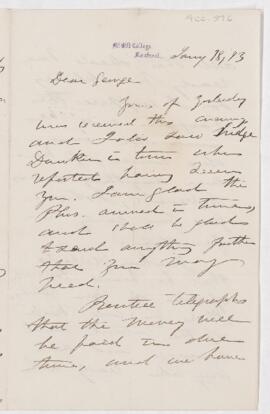 McGill College
Montreal.
Jany 18, 83
Dear George
Yours of yesterday
was received this evening
and I also saw Judge
Dunkin in town who
reported having seen
you. I am glad the
Phs. arrived in time,
and shall be glad
to send anything further
that you may
need.
telegraphs
that the money will
be paid in due
time, and we have